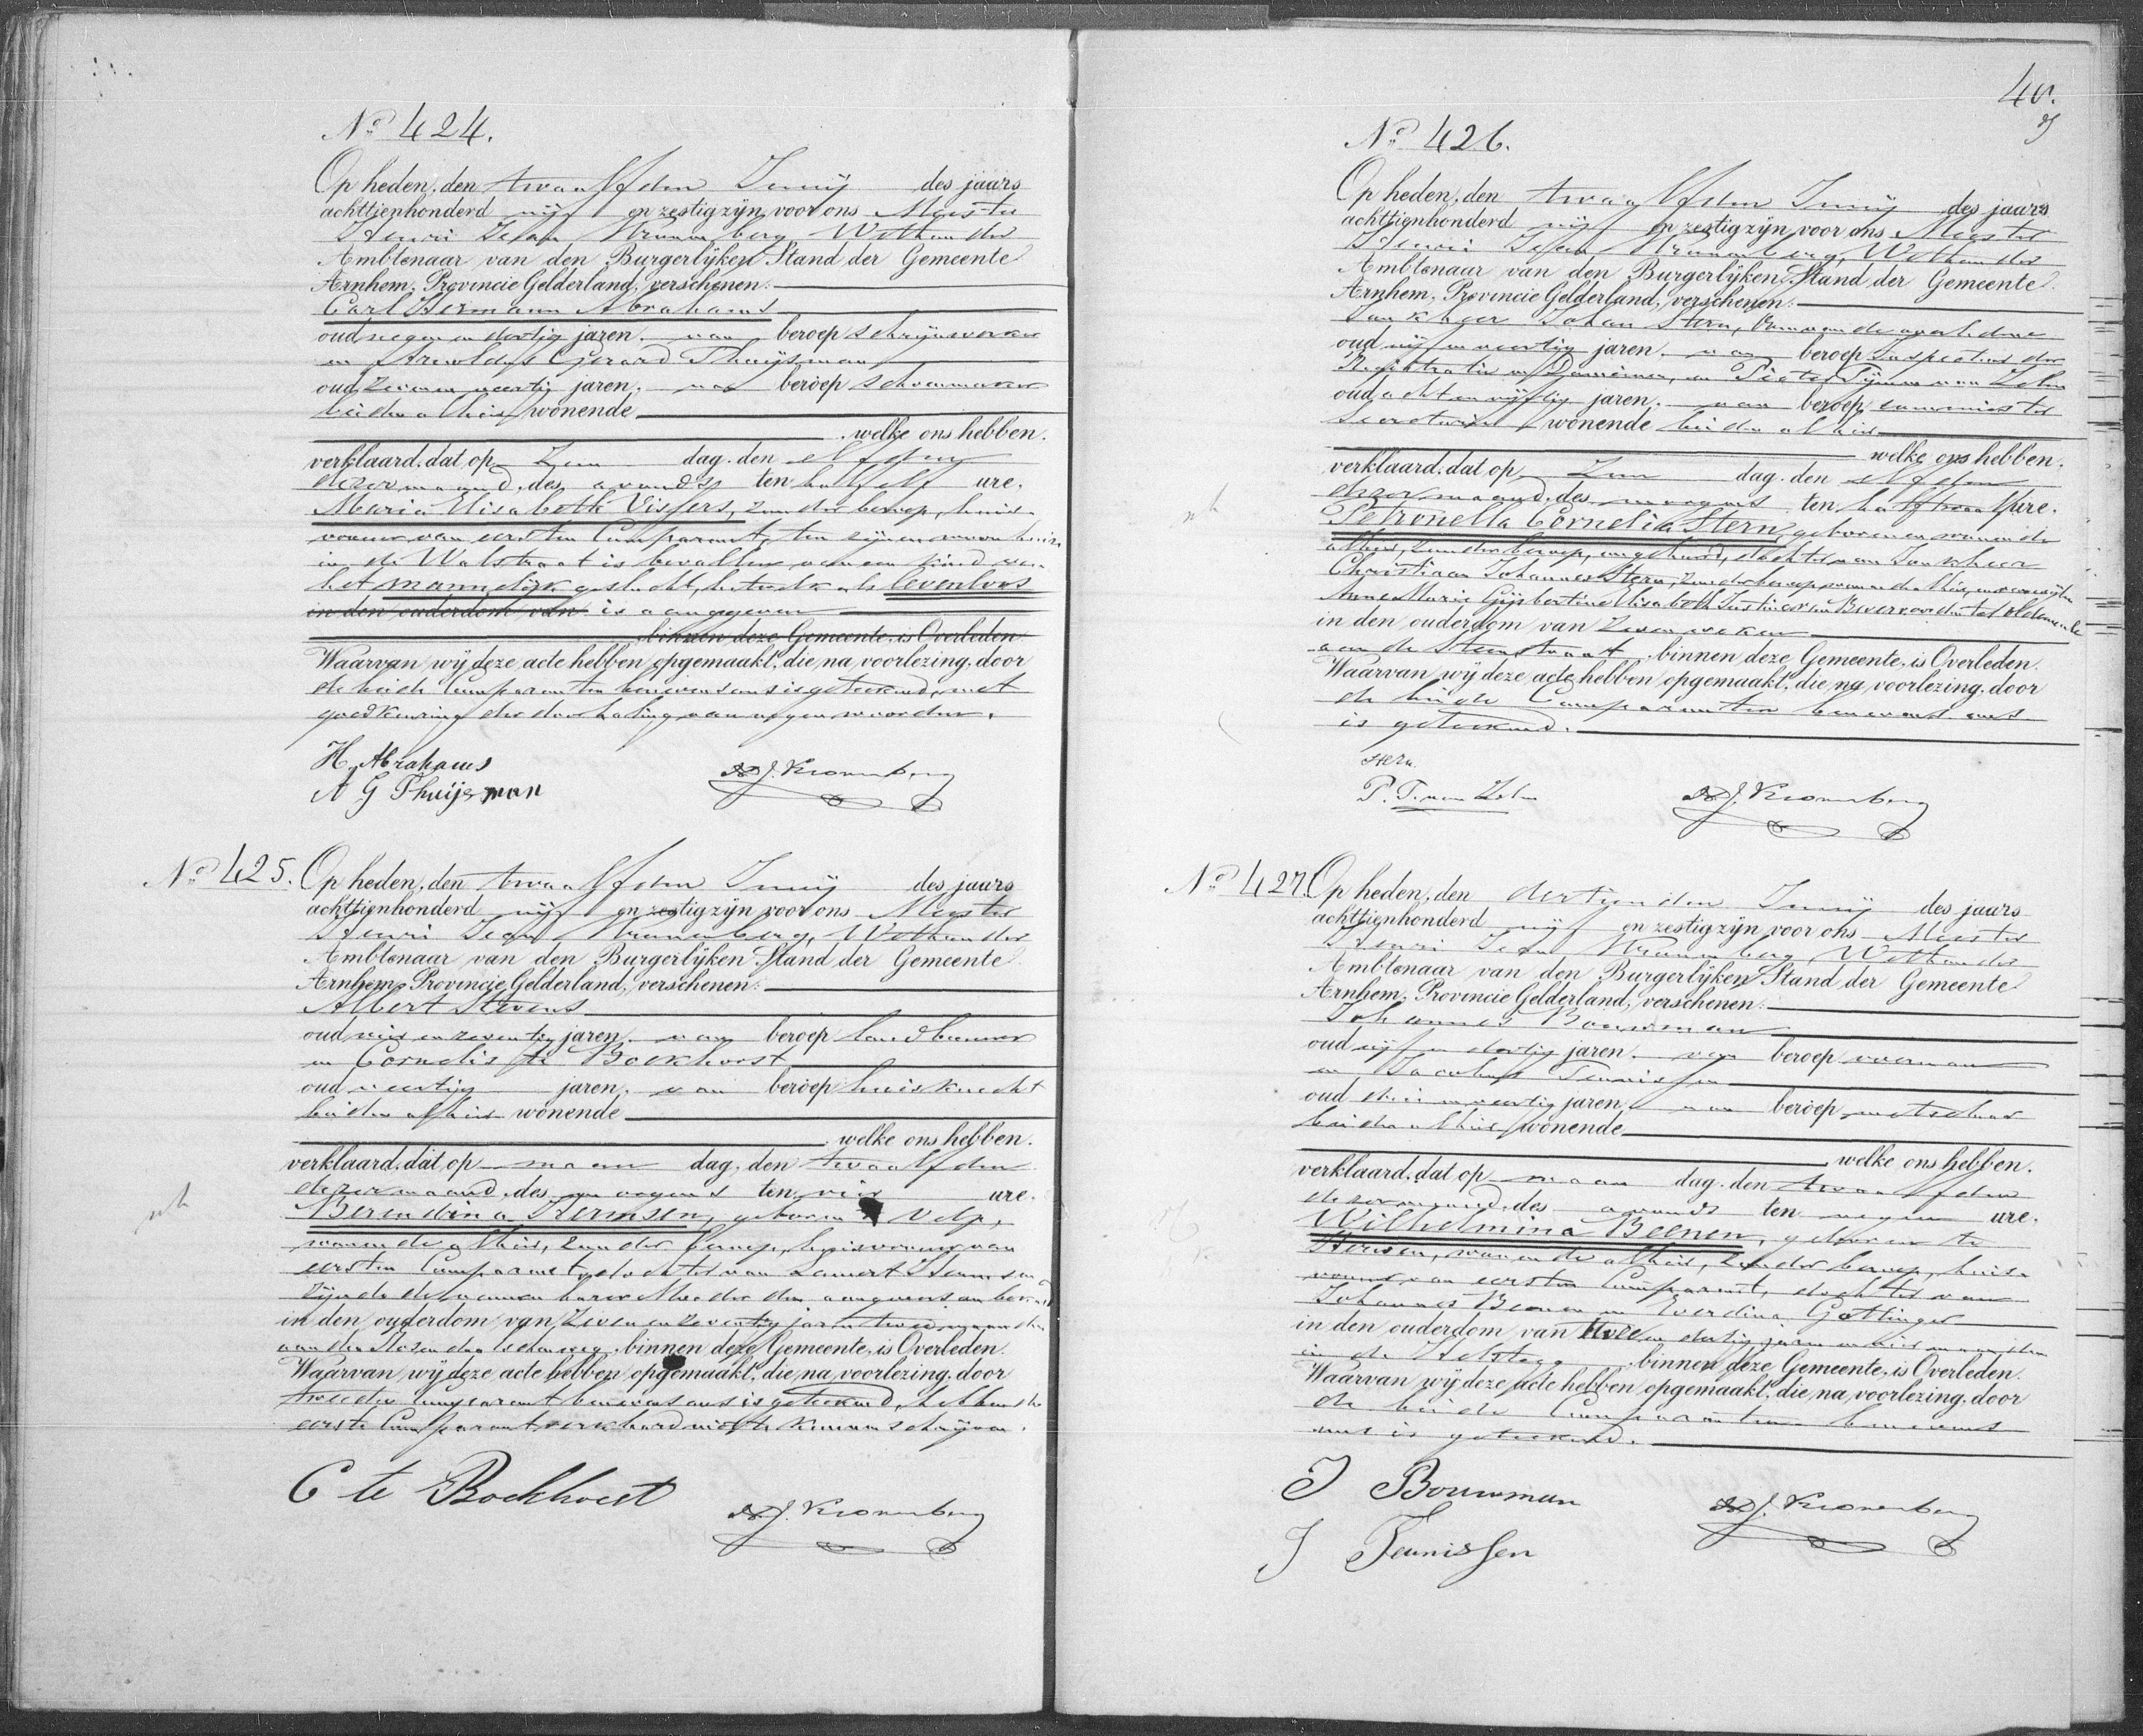 No 424.
Op heden, den twaalfden Junij des jaars
achttienhonderd vijf en zestig zijn voor ons Meester
Henri Jean Kronenberg Wethouder
Ambtenaar van den Burgerlijken Stand der Gemeente
Arnhem, Provincie Gelderland, verschenen:
Carl Hermann Abrahams
oud negen en dertig jaren, van beroep schrijnwerker
en Arnoldus Gerard Thuijsman
oud zeven en veertig jaren, van beroep schoenmaker
beiden alhier wonende
welke ons hebben
verklaard, dat op Zon dag, den elfden
dezer maand, des avonds ten half elf ure,
Maria Elisabeth Vissers, zonder beroep, huis-
vrouw van eersten Comparant, ten zijnen woonhuize
in de Walstraat is bevallen van een kind van
het mannelijk geslacht, hetwelk als levenloos
in den ouderdom van is aangegeven
binnen deze Gemeente, is Overleden
Waarvan wij deze acte hebben opgemaakt, die na voorlezing, door
de beide Comparanten benevens ons is geteekend, met
goedkeuring der doorhaling van negen woorden.
H. Abrahams
A G Thuijsman
H. J. Kronenberg
No 425. Op heden, den twaalfden Junij des jaars
achttienhonderd vijf en zestig zijn voor ons Meester
Henri Jean Kronenberg, Wethouder
Ambtenaar van den Burgerlijken Stand der Gemeente
Arnhem, Provincie Gelderland, verschenen:
Albert Stevens
oud vier en zeventig jaren, van beroep landbouwer
en Cornelis te Bockhorst
oud veertig jaren, van beroep huisknecht
beiden alhier wonende
welke ons hebben
verklaard, dat op maan dag, den twaalfden
dezer maand, des morgens ten vier ure,
nh
Berendina Hermsen, geboren te Velp,
wonende alhier, zonder beroep, huisvrouw van
eersten Comparant, dochter van Hermsen
zijnde de namen harer Moeder den aangevers onbekend
in den ouderdom van zeven en zeventig jaren twee maanden
aan den binnen deze Gemeente, is Overleden.
Waarvan wij deze acte hebben opgemaakt, die na voorlezing, door
tweeden Comparant benevens ons is geteekend, hebbende
eerste Comparant verklaard niet te kunnen schrijven.
C te Bockhorst
H. J. Kronenberg
No 426.
Op heden, den twaalfden Junij des jaars
achttienhonderd vijf en zestig zijn voor ons Meester
Henri Jean Kronenberg, Wethouder
Ambtenaar van den Burgerlijken Stand der Gemeente
Arnhem, Provincie Gelderland, verschenen:
Jonkheer Johan Stern, Oom van de overledene
oud vijf en veertig jaren, van beroep Inspecteur der
Registratie en Domeinen, en Pieter Tijmen van Zelm
oud acht en vijftig jaren, van beroep commies ter
Secretarie wonende beiden alhier
welke ons hebben
verklaard, dat op Zon dag, den elfden
dezer maand, des morgens ten half twaalf ure,
nh
Petronella Cornelia Stern, geboren en wonende
alhier, zonder beroep, ongehuwd, dochter van Jonkheer
Christiaan Johannes Stern, zonder beroep, wonende alhier, en van wijlen
Anne Maria Gijsbertine Elisabeth Justine van Bevervoorden tot Oldemeule
in den ouderdom van zeven weken
aan de Steenstraat, binnen deze Gemeente, is Overleden.
Waarvan wij deze acte hebben opgemaakt, die na voorlezing, door
de beide Comparanten benevens ons
is geteekend.
Stern
P. T. van Zelm
H. J. Kronenberg
No 427. Op heden, den dertienden Junij des jaars
achttienhonderd vijf en zestig zijn voor ons Meester
Henri Jean Kronenberg, Wethouder
Ambtenaar van den Burgerlijken Stand der Gemeente
Arnhem, Provincie Gelderland, verschenen:
Johannes Bouwman
oud vijf en dertig jaren, van beroep voerman
en Jacobus Teunissen
oud drie en veertig jaren, van beroep metselaar
beiden alhier wonende
welke ons hebben
verklaard, dat op maan dag, den twaalfden
dezer maand, des avonds ten negen ure,
Wilhelmina Beenen, geboren te
wonende alhier, zonder beroep, huis-
vrouw van eersten Comparant, dochter van
Johannes Beenen en Everdina Gottinger
in den ouderdom van twee en dertig jaren en vier maanden
in de binnen deze Gemeente, is Overleden.
Waarvan wij deze acte hebben opgemaakt, die na voorlezing, door
de beide Comparanten benevens
ons is geteekend.
J Bouwman
J Teunissen
H. J. Kronenberg